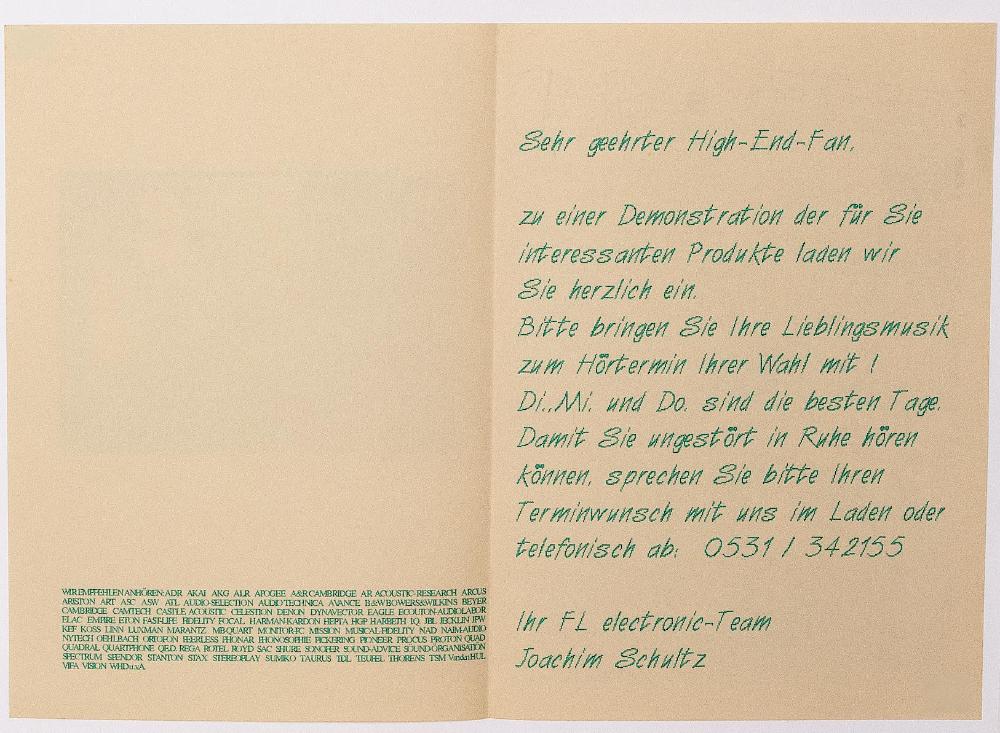 WIR EMPFEHLEN ANHÖREN: ADR AKAI AKG ALR APOGEE A&R CAMBRIDGE AR ACOUSTIC-RESEARCH ARCUS
ARISTON ART ASC ASW ATL AUDIO-SELECTION AUDIO TECHNICA AVANCE B&W BOWERS&WILKINS BEYER
CAMBRIDGE CAMTECH CASTLE ACOUSTIC CELESTION DENON DYNAVECTOR EAGLE ECOUTON-AUDIOLABOR
ELAC EMPIRE ETON FAST-LIFE FIDELITY FOCAL HARMAN-KARDON HEPTA HGP HARBETH I.Q. JBL JECKLIN JPW
KEF KOSS LINN LUXMAN MARANTZ MB-QUART MONITOR-PC MISSION MUSICAL-FIDELITY NAD NAIM-AUDIO
NYTECH OEHLBACH ORTOFON PEERLESS PHONAR PHONOSOPHIE PICKERING PIONEER PROCUS PROTON QUAD
QUADRAL QUARTPHONE QED REGA ROTEL ROYD SAC SHURE SONOFER SOUND-ADVICE SOUND-ORGANISATION
SPECTRUM SPENDOR STANTON STAX STEREOPLAY SUMIKO TAURUS TDL TEUFEL THORENS TSM Van den HUL
VIFA VISION WHD u.v.A.
Sehr geehrter High-End-Fan,
zu einer Demonstration der für Sie
interessanten Produkte laden wir
Sie herzlich ein.
Bitte bringen Sie Ihre Lieblingsmusik
zum Hörtermin Ihrer Wahl mit !
Di.,Mi. und Do. sind die besten Tage.
Damit Sie ungestört in Ruhe hören
können, sprechen Sie bitte Ihren
Terminwunsch mit uns im Laden oder
telefonisch ab: 0531 / 342155
Ihr FL electronic-Team
Joachim Schultz